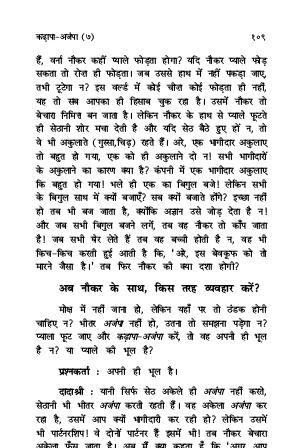 कढ़ापा-अजंपा (७) १०९
हैं, वर्ना नौकर कहीं प्याले फोड़ता होगा? यदि नौकर प्याले फोड़
सकता तो रोज़ ही फोड़ता। जब उससे हाथ में नहीं पकड़ा जाए,
तभी टूटेगा न? इस वर्ल्ड में कोई चीज़ कोई फोड़ता ही नहीं,
यह तो सब आपका ही हिसाब चुक रहा है। उसमें नौकर तो
बेचारा निमित्त बन जाता है। लेकिन नौकर के हाथ से प्याले फूटते
ही सेठानी शोर मचा देती है और यदि सेठ बैठे हुए हों न, तो
वे भी अकुलाते (गुस्सा,चिढ़) रहते हैं। अरे, एक भागीदार अकुलाए
तो बहुत हो गया, एक को ही अकुलाने दो न! सभी भागीदारों
के अकुलाने का कारण क्या है? कंपनी में एक भागीदार अकुलाए
कि बहुत हो गया! भले ही एक का बिगुल बजे! लेकिन सभी
के बिगुल साथ में क्यों बजाएँ? सब क्यों बजाते होंगे? इच्छा नहीं
हो तब भी बज जाता है, क्योंकि अज्ञान उसे जोड़ देता है न!
और जब सभी बिगुल बजने लगें, तब वह नौकर तो काँप जाता
है! जब सभी घेर लेते हैं तब वह बच्ची होती है न, वह भी
किच-किच करती हुई आती है कि, 'अरे, इस बेवकूफ को तो
मारने जैसा है।' तब फिर नौकर की क्या दशा होगी?
अब नौकर के साथ, किस तरह व्यवहार करें?
मोक्ष में नहीं जाना हो, लेकिन यहाँ पर तो ठंडक होनी
चाहिए न? भीतर अजंपा नहीं हो, उतना तो समझना पड़ेगा न?
प्याला फूट जाए और कढ़ापा-अजंपा करें, तो वह अपनी ही भूल
है न? या प्याले की भूल है?
प्रश्नकर्ता : अपनी ही भूल है।
दादाश्री : यानी सिर्फ सेठ अकेले ही अजंपा नहीं करते,
सेठानी भी भीतर अजंपा करती रहती हैं। वह अकेला अजंपा कर
रहा है, उसमें आप क्यों भागीदारी कर रही हो? लेकिन उसमें
भी पार्टनरशिप! वे दोनों पार्टनर हैं इसमें भी! तब नौकर बेचारा